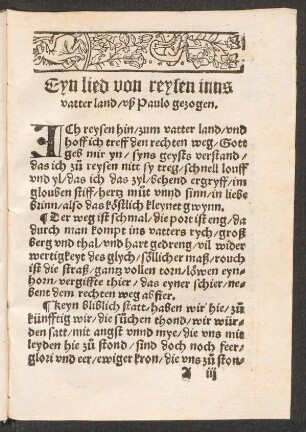 Eyn lied von reysen inns
vatter land/vß Paulo gezogen.
ICh reysen hin/zum vatter land/vnd
hoff ich treff den rechten weg/Gott
geb mir yn/syns geysts verstand/
das ich zů reysen nitt sy treg/schnell louff
vnd yl/das ich das zyl/behend ergryff/im
glouben stiff/hertz můt vnnd sinn/in liebe
brinn/also das köstlich kleynet gwynn.
¶ Der weg ist schmal/die port ist eng/da
durch man kompt ins vatters rych/groß
berg vnd thal/vnd hart gedreng/vil wider
wertigkeyt des glych/söllicher maß/rouch
ist die straß/gantz vollen torn/löwen eyn-
horn/vergiffte thier/das eyner schier/ne-
bent dem rechten weg abfier.
¶ Keyn bliblich statt/haben wir hie/zů
künfftig wir/die sůchen thond/wir wür-
den satt/mit angst vnnd mye/die vns mit
leyden hie zů stond/sind doch noch feer/
glori vnd eer/ewiger kron/die vns zů ston-
A iij